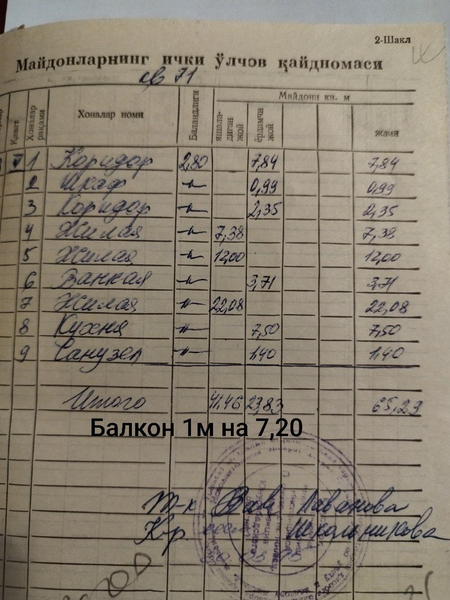 2-Шакл
Майдонларнинг ички ўлчов қайдномаси
кв 71
Хоналар рақами Хоналар номи Баландлиги Майдони кв. м
яшала-диган жой ёрдамчи жой жами
1 Коридор 2,80 7,84 7,84
2 Шкаф -"- 0,99 0,99
3 Коридор -"- 2,35 2,35
4 Жилая -"- 7,38 7,38
5 Жилая -"- 12,00 12,00
6 Ванная -"- 3,71 3,71
7 Жилая -"- 22,08 22,08
8 Кухня -"- 7,50 7,50
9 Санузел -"- 1,40 1,40
Итого 41,46 23,83 65,29
Балкон 1м на 7,20
Т-к Лаванова
Кр Школьникова